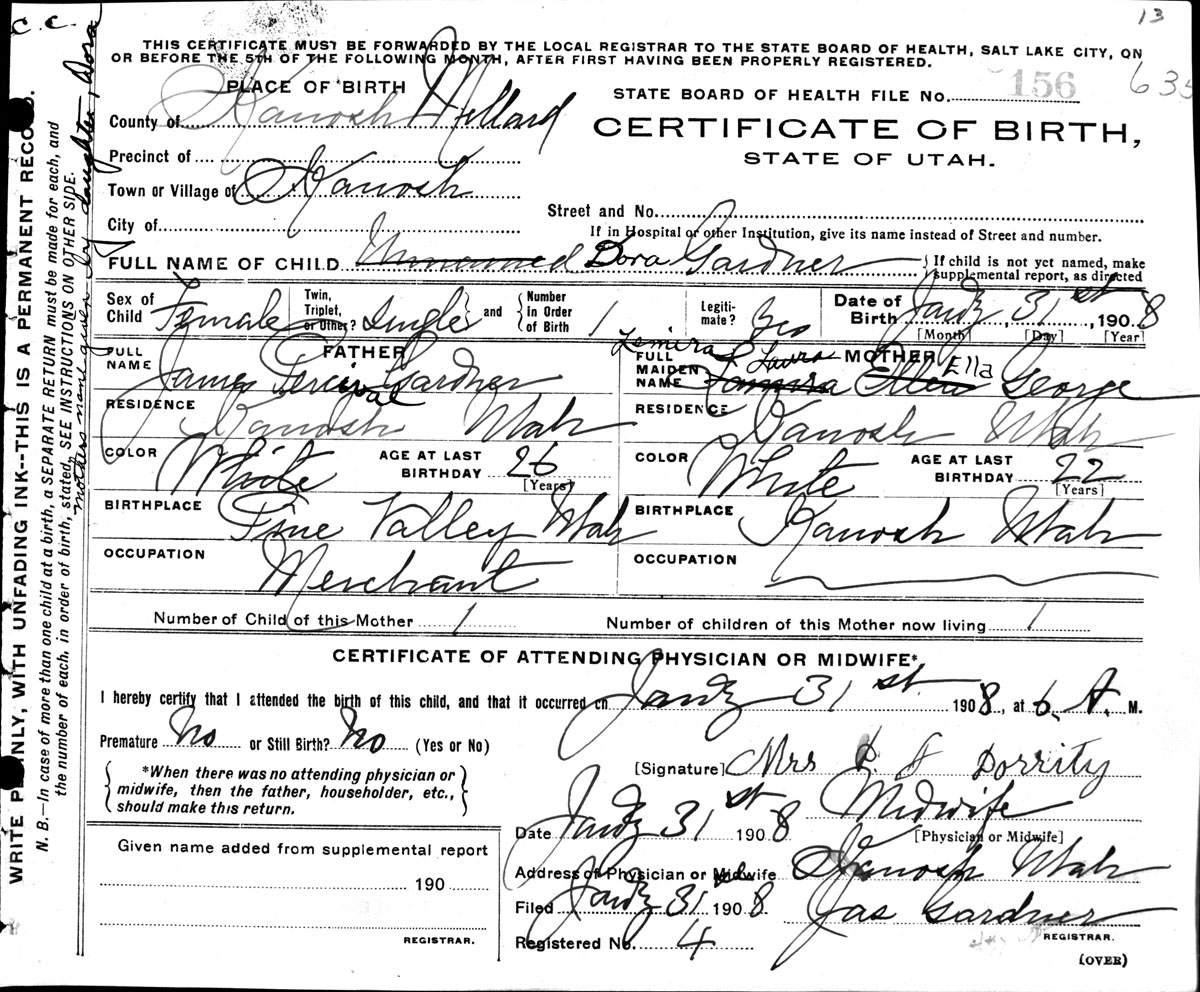 C. C.
13
THIS CERTIFICATE MUST BE FORWARDED BY THE LOCAL REGISTRAR TO THE STATE BOARD OF HEALTH, SALT LAKE CITY, ON
OR BEFORE THE 5TH OF THE FOLLOWING MONTH, AFTER FIRST HAVING BEEN PROPERLY REGISTERED.
PLACE OF BIRTH
STATE BOARD OF HEALTH FILE No. 156
635
County of Kanosh Millard
CERTIFICATE OF BIRTH,
STATE OF UTAH.
Precinct of
Town or Village of Kanosh
City of
Street and No.
If in Hospital or other Institution, give its name instead of Street and number.
FULL NAME OF CHILD Unnamed Dora Gardner { If child is not yet named, make supplemental report, as directed
Sex of Child Female Twin, Triplet, or Other? Single and Number In Order of Birth 1 Legitimate? Yes Date of Birth Jany 31st, 1908
[Month] [Day] [Year]
FATHER
FULL NAME James Percival Gardner
RESIDENCE Kanosh Utah
COLOR White AGE AT LAST BIRTHDAY 26
[Years]
BIRTHPLACE Pine Valley Utah
OCCUPATION Merchant
MOTHER
FULL MAIDEN NAME Lemira Laura Ellen Ella George
RESIDENCE Kanosh Utah
COLOR White AGE AT LAST BIRTHDAY 22
[Years]
BIRTHPLACE Kanosh Utah
OCCUPATION
Number of Child of this Mother 1 Number of children of this Mother now living 1
CERTIFICATE OF ATTENDING PHYSICIAN OR MIDWIFE*
I hereby certify that I attended the birth of this child, and that it occurred on Jany 31st 1908, at 6, A. M.
Premature No or Still Birth? No (Yes or No)
*When there was no attending physician or
midwife, then the father, householder, etc.,
should make this return.
[Signature] Mrs Dorrity
Date Jany 31st 1908 Midwife
[Physician or Midwife]
Address of Physician or Midwife Kanosh Utah
Filed Jany 31st 1908 Jas Gardner
REGISTRAR.
Registered No. 4
(OVER)
Given name added from supplemental report
190
REGISTRAR.
WRITE PLAINLY, WITH UNFADING INK--THIS IS A PERMANENT RECORD.
N. B.—In case of more than one child at a birth, a SEPARATE RETURN must be made for each, and
the number of each, in order of birth, stated. SEE INSTRUCTIONS ON OTHER SIDE.
mothers name given by daughter, Dora